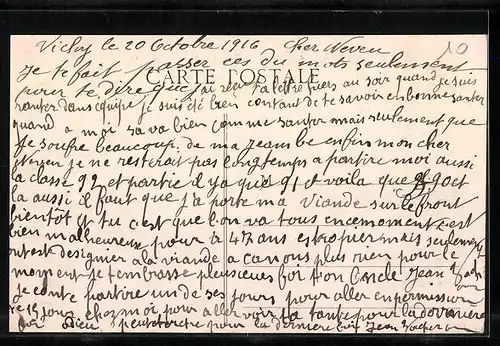 Vichy le 20 Octobre 1916 Cher Neveu
Je te fait passer ces du mots seulement
CARTE POSTALE
pour te dire que j'ai reçu ta lettre hier au soir quand je suis
rentrer dans équipe je suis été bien contant de te savoir en bonne santer
quand a moi sa va bien comme santer mais seulement que
Je souffre beaucoup de ma jeambe enfin mon cher
je ne resterait pas longtemps a partire moi aussi
la classe 92 et partie il ya que 91 et voila que 9 oct
la aussi il faut que j'a porte ma viande sur le front
bientot et tu c'est que l'on va tous en ce moment c'est
bien malheureux pour a 47 ans estropier mais seulement
ont est designier a la viande a canons plus rien pour le
moment je t'embrasse plusieures foi ton Oncle Jean
je conte partire un de ses jours pour aller en permission
de 15 jours chez moi pour aller voir ta tante pour la derniere
foi adieu peut etre pour la derniere foi Jean